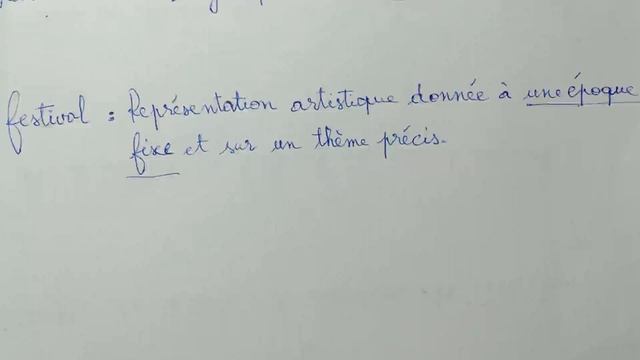 festival : Représentation artistique donnée à une époque
fixe et sur un thème précis.